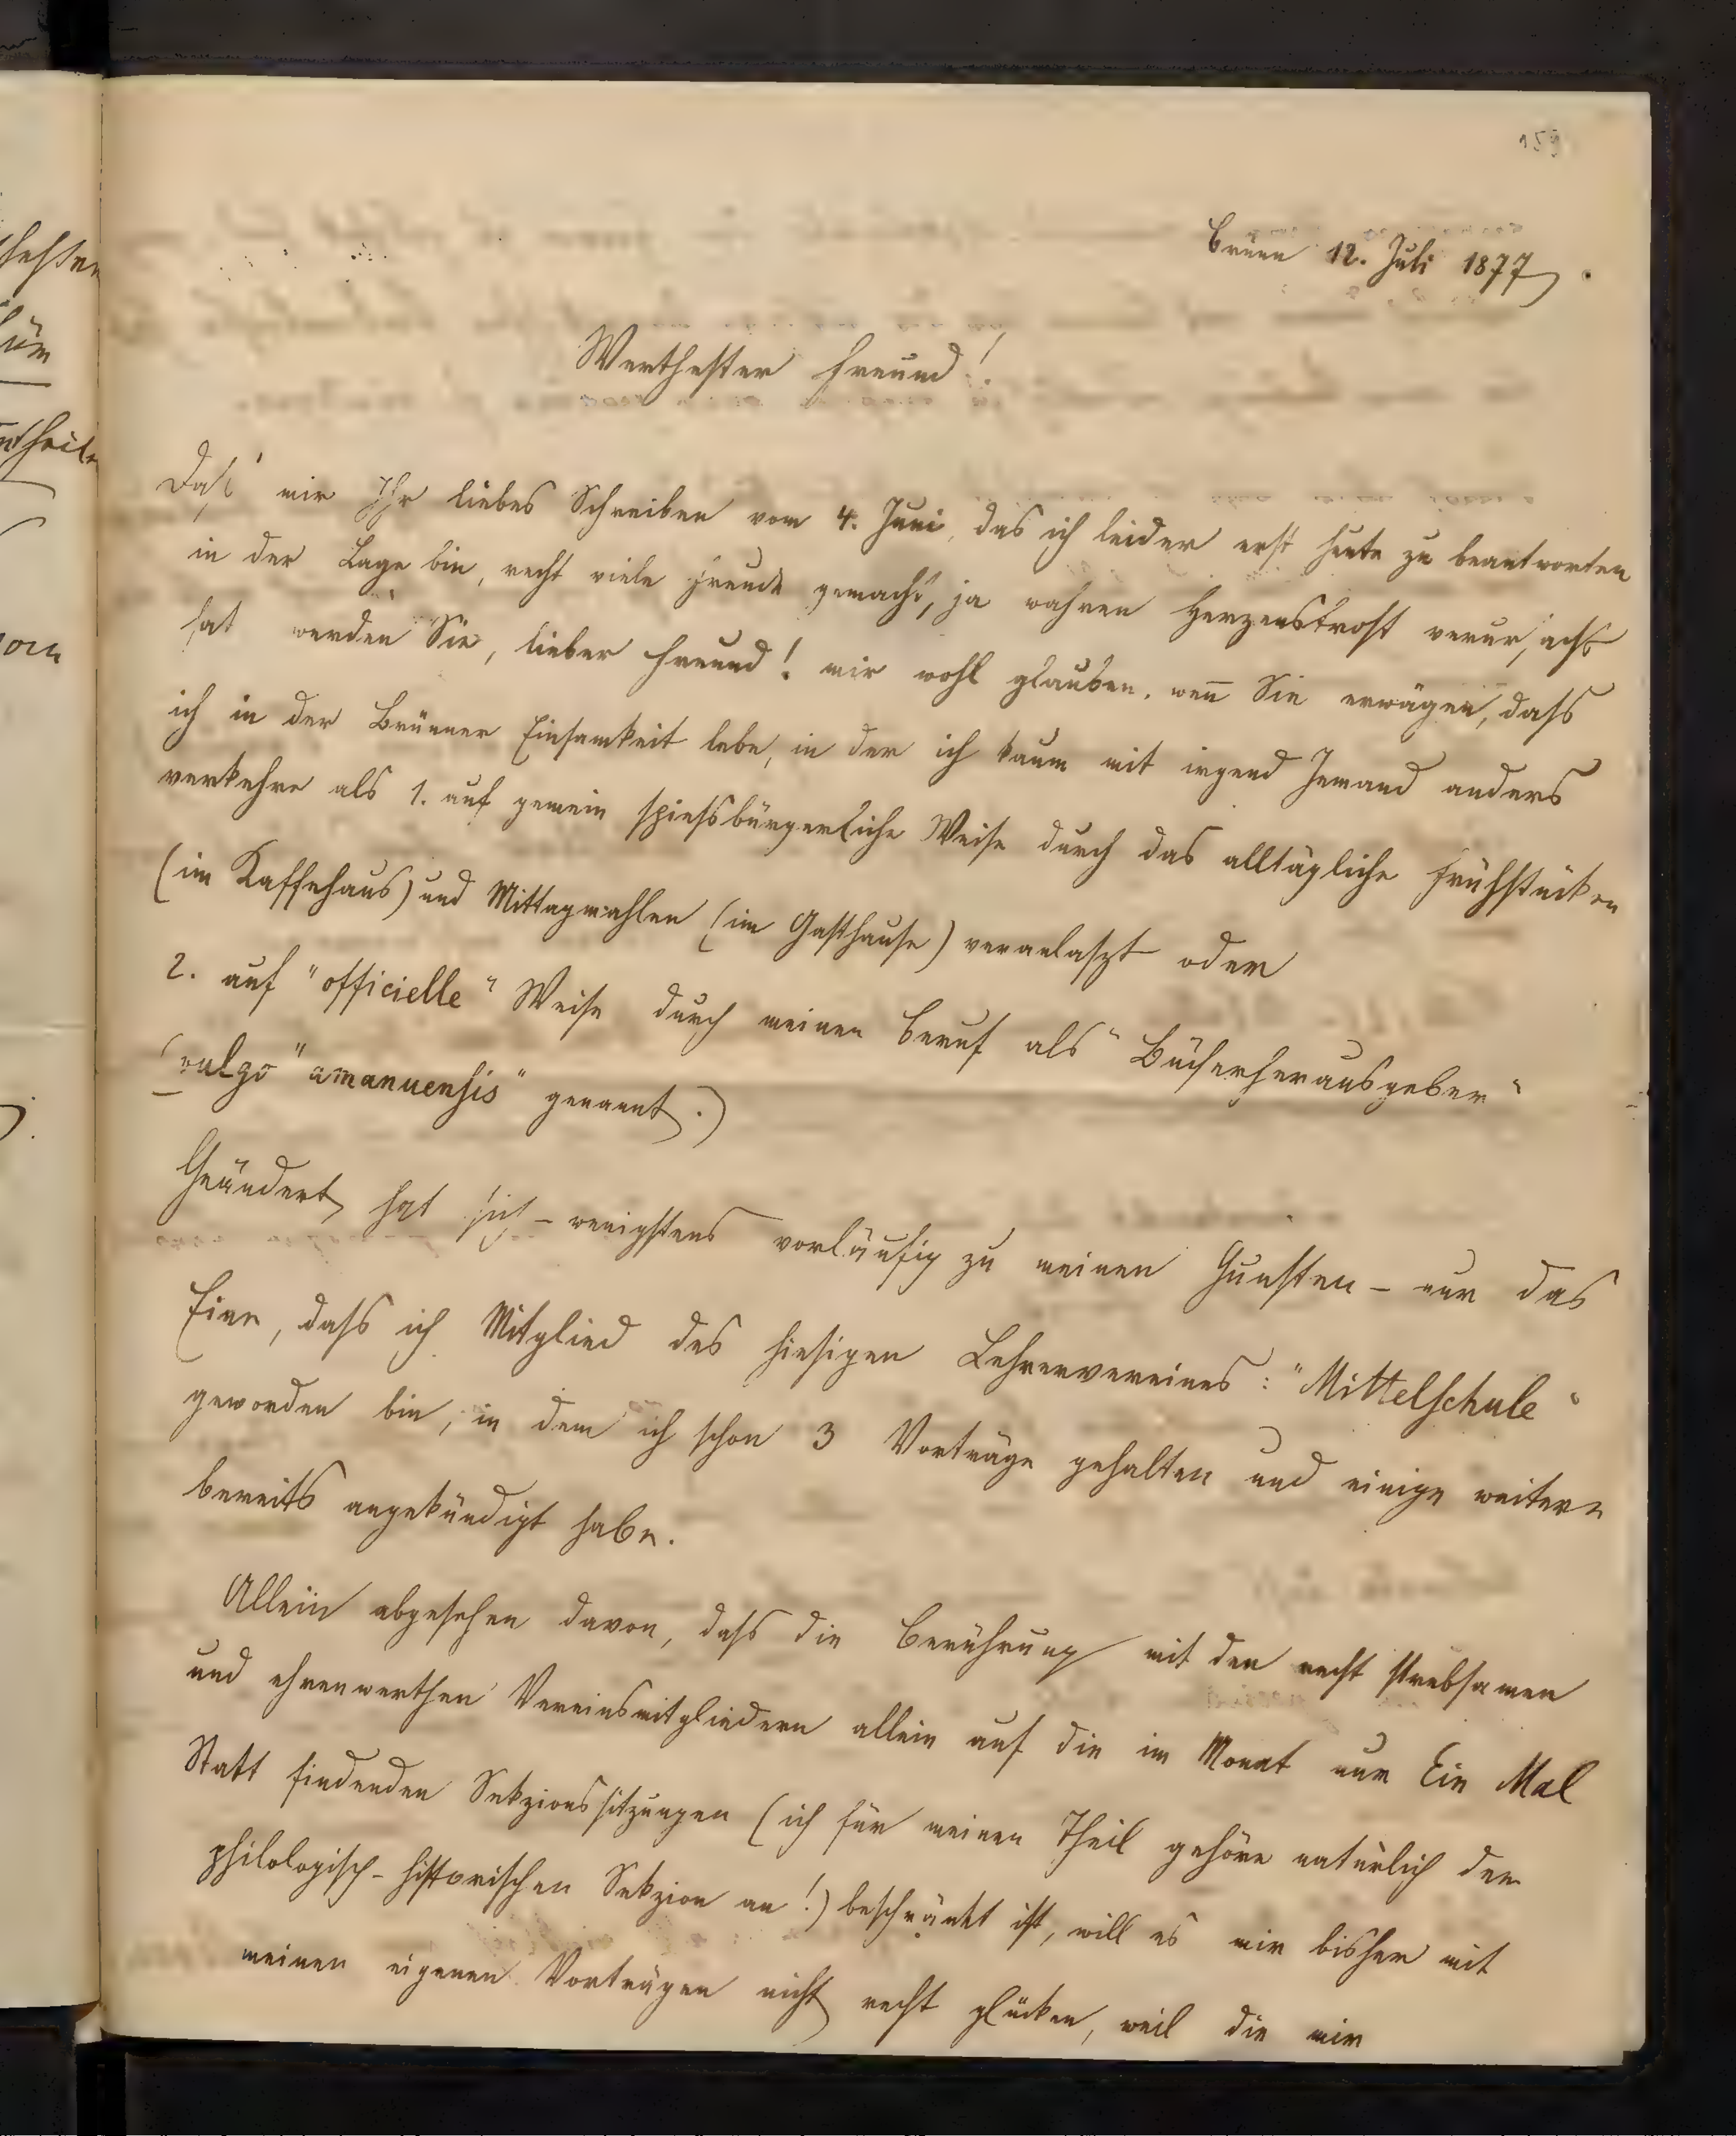 159
Brünn 12. Juli 1877.
Werthester Freund!
Daß mir Ihr liebes Schreiben vom 4. Juni, das ich leider erst heute zu beantworten
in der Lage bin, recht viele Freude gemacht, ja wahren Herzenstrost verursacht
hat werden Sie, lieber Freund! mir wohl glauben, wen̄ Sie erwägen, dass
ich in der Brünner Einsamkeit lebe, in der ich kaum mit irgend Jemand anders
verkehre als 1. auf gemein spiessbürgerliche Weise durch das alltägliche Frühstücken
(im Kaffehaus) und Mittagmahlen (im Gasthause) veranlaszt oder
2. auf "officielle" Weise durch meinen Beruf als "Bücherherausgeber"
(vulgo "amanuensis" genannt.)
Geändert hat sich – wenigstens vorläufig zu meinen Gunsten – nur das
Eine, dass ich Mitglied des hiesigen Lehrervereines: "Mittelschule"
geworden bin, in dem ich schon 3 Vorträge gehalten und einige weitere
bereits angekündigt habe.
Allein abgesehen davon, dass die Berührung mit den recht strebsamen
und ehrenwerthen Vereinsmitgliedern allein auf die im Monat nur Ein Mal
Statt findenden Sekzionssitzungen (ich für meinen Theil gehöre natürlich der
philologisch-historischen Sekzion an!) beschränkt ist, will es mir bisher mit
meinen eigenen Vorträgen nicht recht glücken, weil die mir